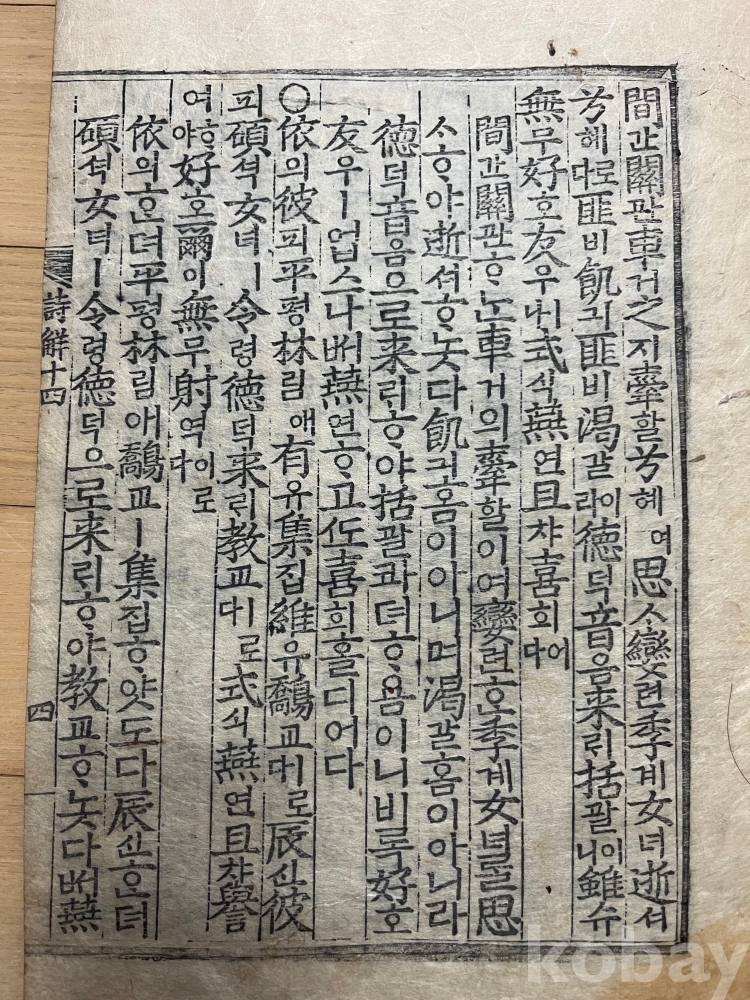 間간關관車거之지舝할兮혜여思ᄉᆞ孌련季계女녀逝셔
兮혜로다匪비飢긔匪비渴갈이라德덕音음来ᄅᆡ括괄이니雖슈
無무好호友우ㅣ나式식燕연且챠喜희어다
間간關관ᄒᆞᄂᆞᆫ車거의舝할이여孌련ᄒᆞᆫ季계女녀ᄅᆞᆯ思
ᄉᆞᄒᆞ야逝셔ᄒᆞ놋다飢긔홈이아니며渴갈홈이아니라
德덕音음으로来ᄅᆡᄒᆞ야括괄과뎌ᄒᆞ욤이니비록好호
友우ㅣ업스나ᄡᅥ燕연ᄒᆞ고ᄯᅩ喜희홀디어다
○依의彼피平평林림애有유集집維유鷮교ㅣ로다辰신彼
피碩셕女녀ㅣ令령德덕来ᄅᆡ教교ㅣ로다式식燕연且챠譽
여ᄒᆞ야好호爾이無무射역이로다
依의ᄒᆞᆫ뎌平평林림애鷮교ㅣ集집ᄒᆞ얏도다辰신ᄒᆞᆫ뎌
碩셕女녀ㅣ令령德덕으로来ᄅᆡᄒᆞ야教교ᄒᆞ놋다ᄡᅥ燕
詩解十四
四
kobay